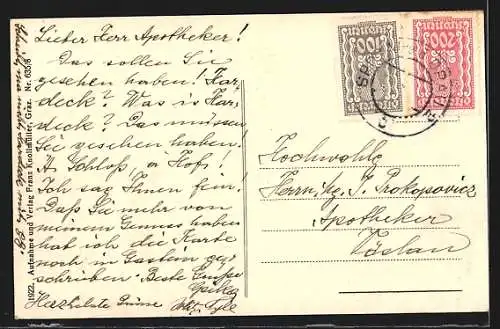 Lieber Herr Apotheker!
Das sollen Sie
gesehen haben! Kar-
deck? Was is Kar-
deck? Das müssen
Sie gesehen haben!
A Schloß, a Hof,!
Ich sag Ihnen fein!
Daß Sie mehr von
meinem Genuss haben
hat ich die Karte
noch in Gastein ge-
schrieben. Beste Grüße
Herzlichste Grüsse
1922. Aufnahme und Verlag Franz Knollmüller, Graz. Nr. 635/8
200
Hochwohlg.
Herrn Mg. J. Prokopovicz
Apotheker
Vöslau